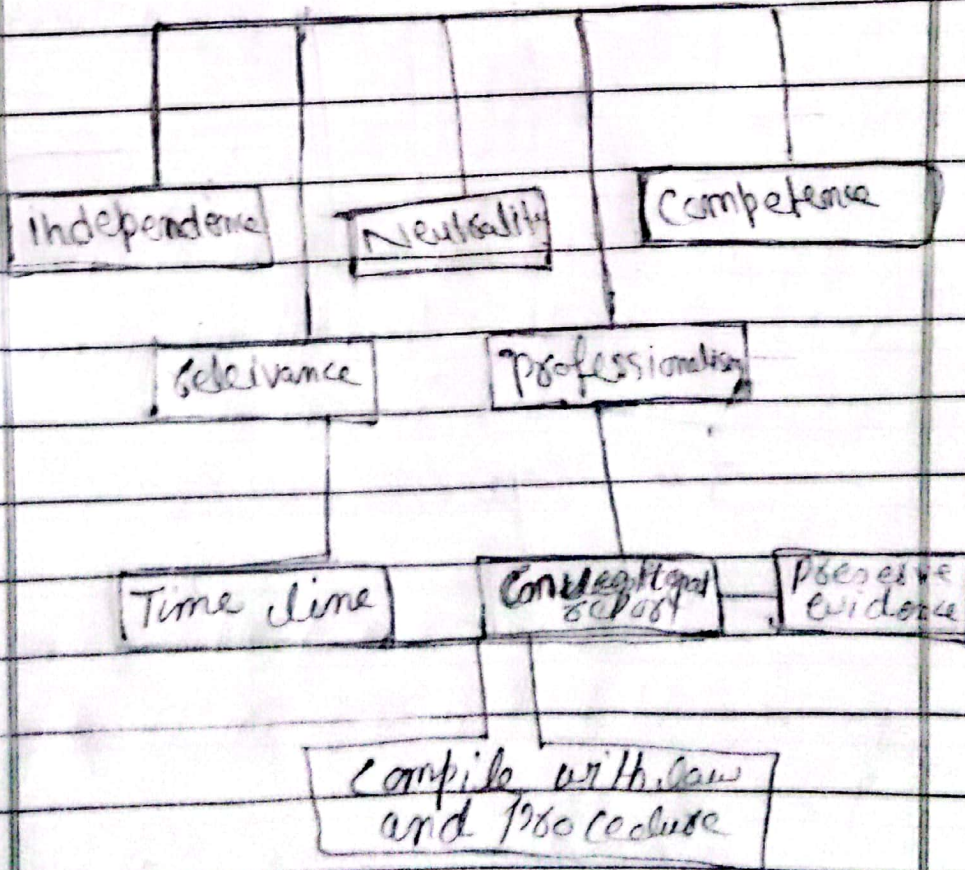 Independence
Neutrality
Competence
releivance
Professionalism
Time line
report
Preserve
evidence
Compile with law
and Procedure